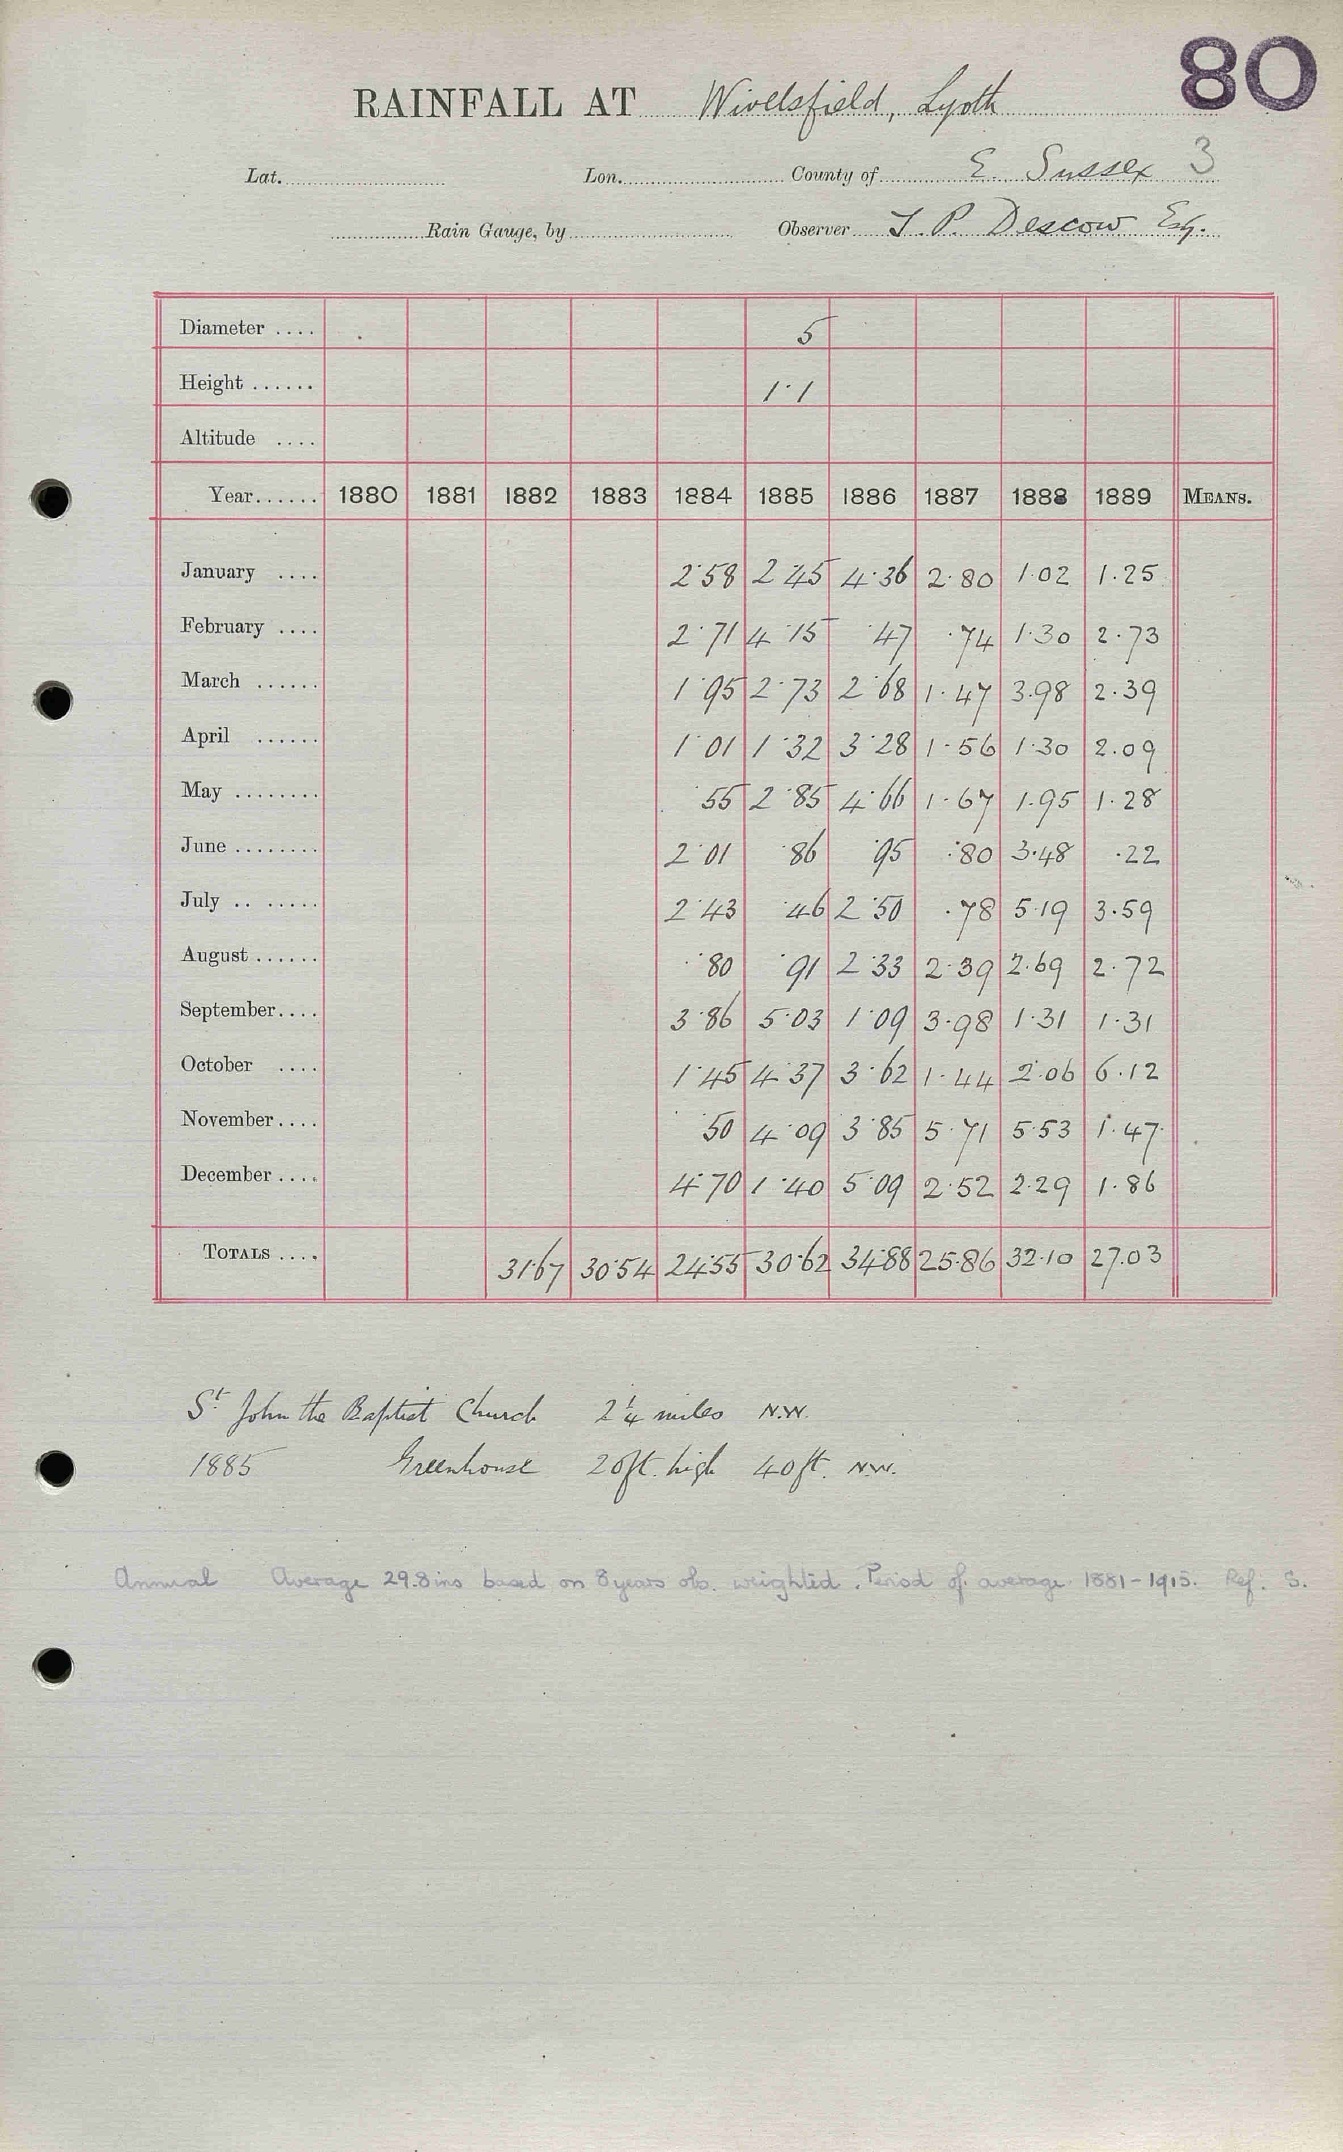 80
RAINFALL AT Wivelsfield, Lyoth
Lat. Lon. County of E. Sussex 3
Rain Gauge, by Observer T. P. Descow Esq.
Diameter .... 5
Height ...... 1·1
Altitude ....
Year...... 1880 1881 1882 1883 1884 1885 1886 1887 1888 1889 MEANS.
January .... 2·58 2·45 4·36 2·80 1·02 1·25
February .... 2·71 4·15 ·47 ·74 1·30 2·73
March ...... 1·95 2·73 2·68 1·47 3·98 2·39
April ...... 1·01 1·32 3·28 1·56 1·30 2.09
May ........ ·55 2·85 4·66 1·67 1·95 1·28
June ........ 2·01 ·86 ·95 ·80 3·48 ·22
July .. ..... 2·43 ·46 2·50 ·78 5·19 3·59
August ...... ·80 ·91 2·33 2·39 2·69 2·72
September.... 3·86 5·03 1·09 3·98 1·31 1·31
October .... 1·45 4·37 3·62 1·44 2·06 6·12
November.... ·50 4·09 3·85 5·71 5·53 1·47
December .... 4·70 1·40 5·09 2·52 2·29 1·86
TOTALS .... 31·67 30·54 24·55 30·62 34·88 25·86 32·10 27.03
St. John the Baptist Church 2 1/4 miles N.W.
1885 Greenhouse 20ft. high 40ft. N.W.
Annual Average 29.8 ins based on 8 years obs. weighted. Period of average 1881-1915. Ref: S.